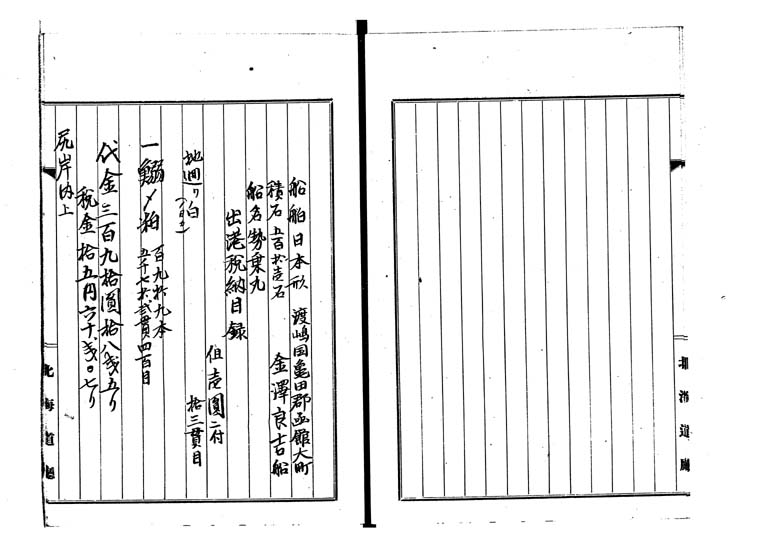 船舶日本形　渡嶋国亀田郡函館大町
積石五百拾壱石　金澤良吉船
船名勢乗丸
出港税納目録
但壱圓ニ付
拾三貫目
地廻リ白
一鰯〆粕　百九拾九本
五千七拾弐貫四百目
代金三百九拾圓拾八銭五リ
税金拾五円六十銭〇七リ
尻岸内上
北海道廳
北海道廳